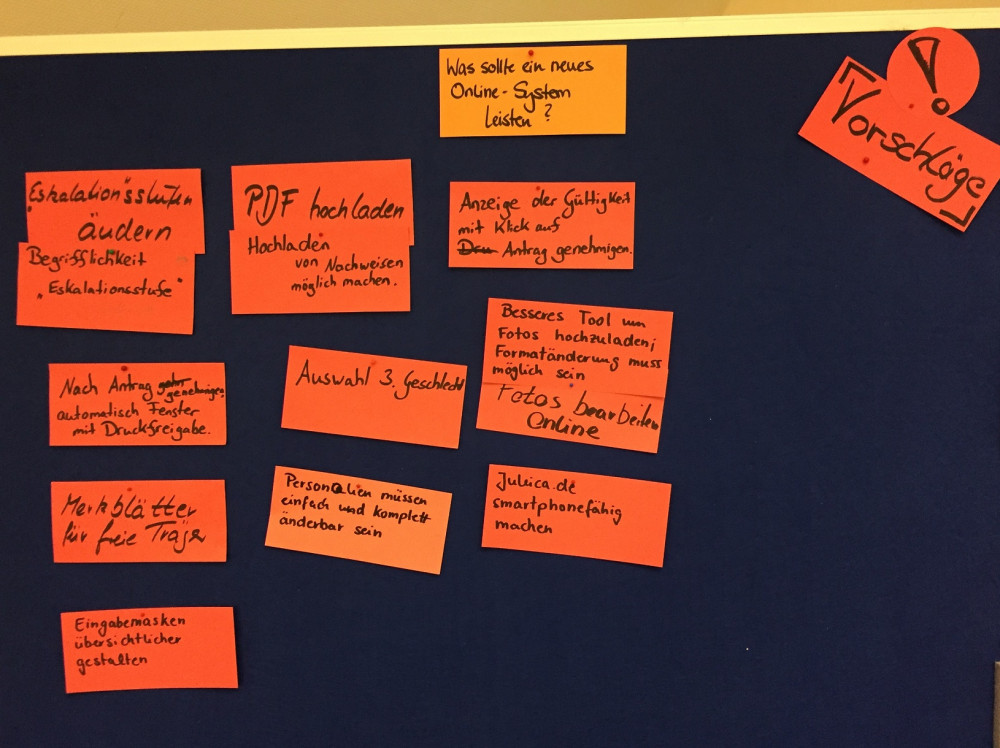 Was sollte ein neues
Online-System
leisten?
!
Vorschläge
Eskalationsstufen
ändern
Begrifflichkeit
"Eskalationsstufe"
PDF hochladen
Hochladen
von Nachweisen
möglich machen.
Anzeige der Gültigkeit
mit Klick auf
Dru Antrag genehmigen.
Besseres Tool um
Fotos hochzuladen;
Formatänderung muss
möglich sein
Fotos bearbeiten
Online
Nach Antrag genehmigen
automatisch Fenster
mit Druckfreigabe.
Auswahl 3. Geschlecht
Merkblätter
für freie Träger
Personalien müssen
einfach und komplett
änderbar sein
Juleica.de
smartphonefähig
machen
Eingabemasken
übersichtlicher
gestalten